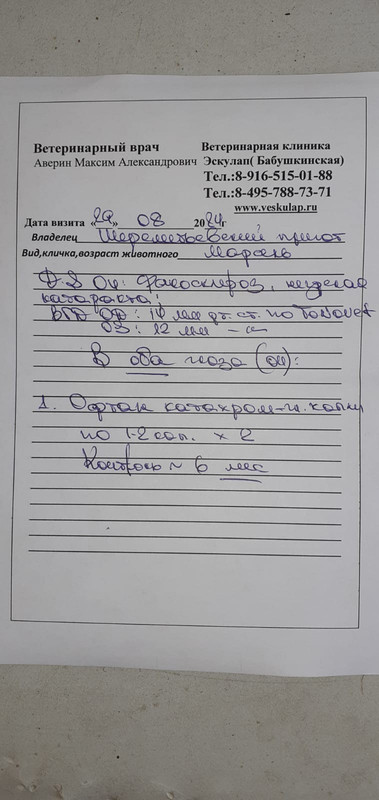 Ветеринарный врач
Аверин Максим Александрович
Ветеринарная клиника
Эскулап( Бабушкинская)
Тел.:8-916-515-01-88
Тел.:8-495-788-73-71
www.veskulap.ru
Дата визита «29» 08 2024г
Владелец Шереметьевский приют
Вид,кличка,возраст животного Марсель
D.S Ou: Факосклероз, незрелая
катаракта;
ВГД OD: 14 мм рт. ст. по TonoVet
OS: 12 мм -"-
В оба глаза (ou):
1. Офтан катахром-гл. капли
по 1-2 кап. x 2
Контроль ~ 6 мес